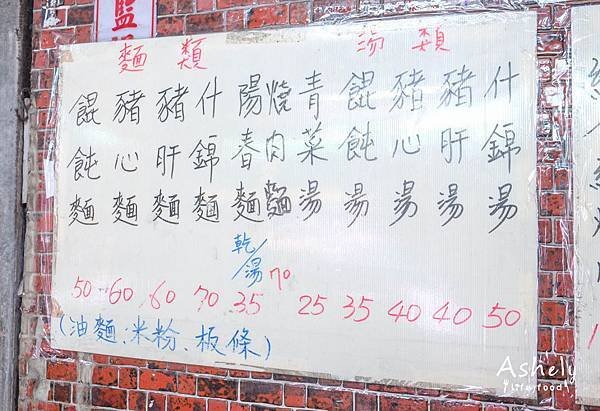 監
麵類
湯類
餛飩麵 50
豬心麵 60
豬肝麵 60
什錦麵 70
陽春麵 乾/湯 35
燒肉麵 70
青菜湯 25
餛飩湯 35
豬心湯 40
豬肝湯 40
什錦湯 50
(油麵、米粉、板條)
Ashely